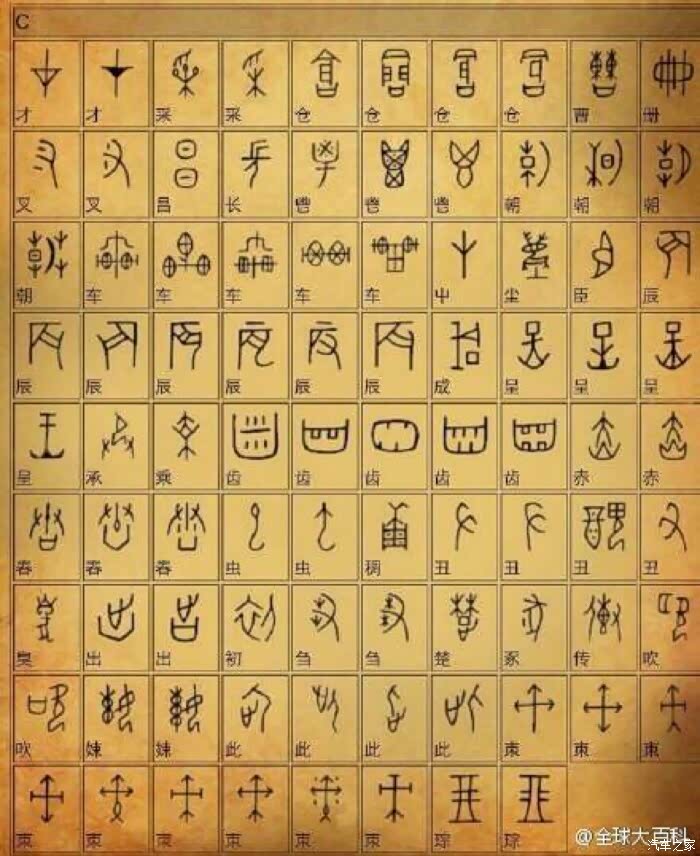 C
才 才 采 采 仓 仓 仓 仓 曹 册
叉 叉 昌 长 鬯 鬯 鬯 朝 朝 朝
朝 车 车 车 车 车 屮 尘 臣 辰
辰 辰 辰 辰 辰 辰 成 呈 呈 呈
呈 承 乘 齿 齿 齿 齿 齿 赤 赤
舂 舂 舂 虫 虫 稠 丑 丑 丑 丑
臭 出 出 初 刍 刍 楚 豕 传 吹
吹 婡 婡 此 此 此 此 朿 朿 朿
朿 朿 朿 朿 朿 朿 琮 琮
@全球大百科
汽车之家